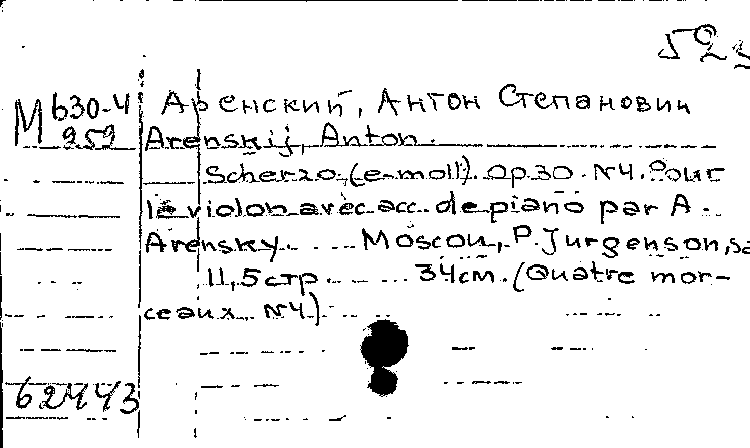 М 630-4
959
Аренский, Антон Степанович
Arenskij, Anton.
Scherzo (e-moll). Op 30. N4. Pour
le violon avec acc. de piano par A.
Arensky. Moscou, P. Jurgenson, sa
11, 5 стр. 34 см. (Quatre mor-
ceaux N4)
62443